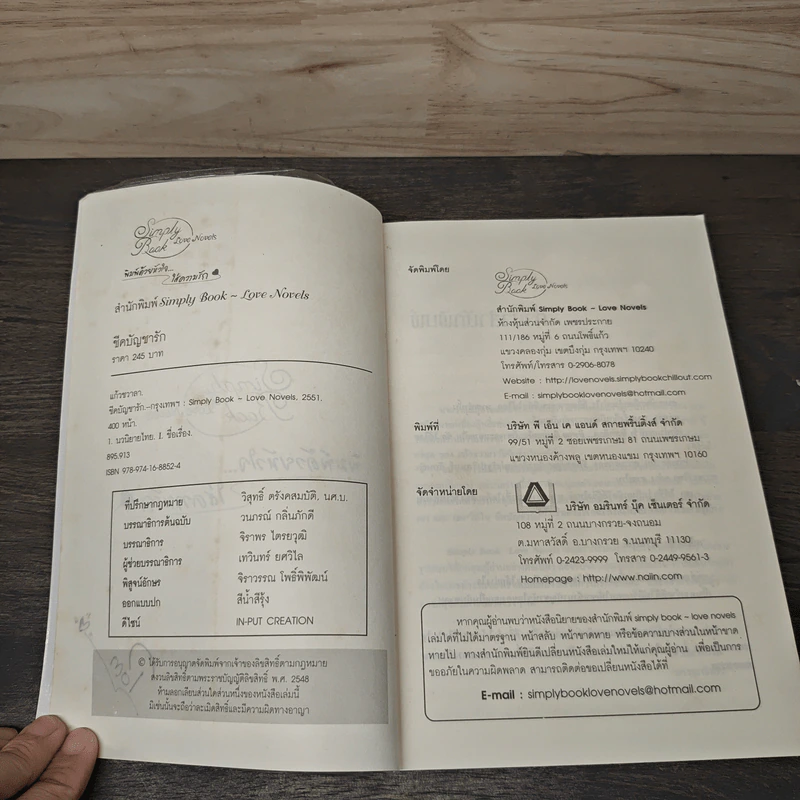 Simply
Book Love Novels
พิมพ์ด้วยหัวใจ...
ใส่ความรัก
สำนักพิมพ์ Simply Book ~ Love Novels
ชีคบัญชารัก
ราคา 245 บาท
แก้วชวาลา.
ชีคบัญชารัก.-กรุงเทพฯ : Simply Book ~ Love Novels, 2551.
400 หน้า.
1. นวนิยายไทย. I. ชื่อเรื่อง.
895.913
ISBN 978-974-16-8852-4
ที่ปรึกษากฎหมาย วิสุทธิ์ ตรังคสมบัติ, นศ.บ.
บรรณาธิการต้นฉบับ วนาภรณ์ กลิ่นภักดี
บรรณาธิการ จิราพร ไตรยวุฒิ
ผู้ช่วยบรรณาธิการ เทวินทร์ ยศวิไล
พิสูจน์อักษร จิราวรรณ โพธิ์พิพัฒน์
ออกแบบปก สีน้ำสีรุ้ง
ดีไซน์ IN-PUT CREATION
© ได้รับการอนุญาตจัดพิมพ์จากเจ้าของลิขสิทธิ์ตามกฎหมาย
สงวนลิขสิทธิ์ตามพระราชบัญญัติลิขสิทธิ์ พ.ศ. 2548
ห้ามลอกเลียนส่วนใดส่วนหนึ่งของหนังสือเล่มนี้
มิเช่นนั้นจะถือว่าละเมิดสิทธิ์และมีความผิดทางอาญา
จัดพิมพ์โดย
Simply
Book Love Novels
สำนักพิมพ์ Simply Book ~ Love Novels
ห้างหุ้นส่วนจำกัด เพชรประกาย
111/186 หมู่ที่ 6 ถนนโพธิ์แก้ว
แขวงคลองกุ่ม เขตบึงกุ่ม กรุงเทพฯ 10240
โทรศัพท์/โทรสาร 0-2906-8078
Website : http://lovenovels.simplybookchillout.com
E-mail : simplybooklovenovels@hotmail.com
พิมพ์ที่ บริษัท พี เอ็น เค แอนด์ สกายพริ้นติ้งส์ จำกัด
99/51 หมู่ที่ 2 ซอยเพชรเกษม 81 ถนนเพชรเกษม
แขวงหนองค้างพลู เขตหนองแขม กรุงเทพฯ 10160
จัดจำหน่ายโดย บริษัท อมรินทร์ บุ๊ค เซ็นเตอร์ จำกัด
108 หมู่ที่ 2 ถนนบางกรวย-จงถนอม
ต.มหาสวัสดิ์ อ.บางกรวย จ.นนทบุรี 11130
โทรศัพท์ 0-2423-9999 โทรสาร 0-2449-9561-3
Homepage : http://www.naiin.com
หากคุณผู้อ่านพบว่าหนังสือนิยายของสำนักพิมพ์ simply book ~ love novels
เล่มใดที่ไม่ได้มาตรฐาน หน้าสลับ หน้าขาดหาย หรือข้อความบางส่วนในหน้าขาด
หายไป ทางสำนักพิมพ์ยินดีเปลี่ยนหนังสือเล่มใหม่ให้แก่คุณผู้อ่าน เพื่อเป็นการ
ขออภัยในความผิดพลาด สามารถติดต่อขอเปลี่ยนหนังสือได้ที่
E-mail : simplybooklovenovels@hotmail.com